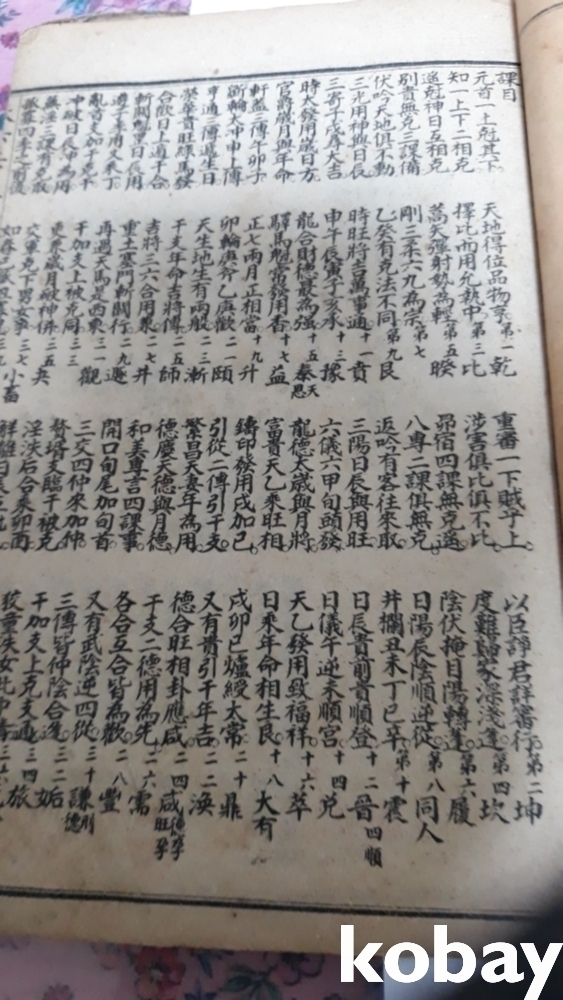 課目
元首一上尅其下 天地得位品物亨 第一乾 重審一下賊于上 以臣諍君詳審行 第二坤
知一上下二相克 擇比而用允執中 第三比 涉害俱比俱不比 度難歸家深淺逢 第四坎
遙尅神日互相克 蒿矢彈射勢為輕 第五睽 昴宿四課無克遙 陰伏掩目陽轉逢 第六履
別責無克三課備 剛三柔六九為宗 第七 八專二課俱無克 日陽辰陰順逆從 第八同人
伏吟天地俱不動 乙癸有克法不同 第九艮 返吟有客往來取 井欄丑未丁己辛 第十震
三光用神與日辰 時旺將吉萬事通 十一賁 三陽日辰與用旺 日辰貴前貴順登 十二晉 四順
三奇子戌辱大吉 申午辰寅子亥承 十三豫 六儀六甲旬頭發 日儀午逆未順宮 十四兌
時太發用歲日方 龍合財德最為強 十五泰 天恩 龍德太歲與月將 天乙發用致福祥 十六萃
官爵歲月與年命 驛馬魁常發用香 十七益 富貴天乙乘旺相 日乘年命相生良 十八大有
軒蓋三傳午卯子 正七兩月正相當 十九升 鑄印發用戌加巳 戌卯巳爐綬太常 二十鼎
斲輪太冲申上傳 卯輪庚斧乙庚歡 二一頤 引從二傳引干支 又有貴引干年吉 二二渙
亨通二傳遞生日 天生地生有兩般 二三漸 繁昌夫妻年為用 德合旺相卦應咸 二四咸 德孕旺孕
榮華貴旺祿馬發 干支年命吉將傳 二五師 德慶天德與月德 干支二德用為先 二六需
合歡日上遁干合 吉將三六合用泉 二七井 和美尊言四課事 各合互合皆為歡 二八豐
斬關魁罡日辰用 重土塞門斬關行 二九遯 開口旬尾加旬首 又有武陰逆四從 三十謙 刑德
遊子季用又乘丁 再遇天馬是西東 三一觀 三交四仲來加仲 三傳皆仲陰合逢 三二姤
亂首支加干克干 干加支上被克同 三三 贅壻支臨干被克 干加支上克支通 三四旅
冲破日辰冲為用 更乘歲月破神併 三五夬 淫泆后合乘卯酉 狡童泆女此中 三六
蕪淫三課有克取 交車克下男女爭 三七小畜 解離日辰
kobay